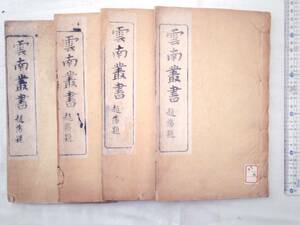 雲南叢書
趙藩題
雲南叢書
趙藩題
雲南叢書
趙藩題
雲南叢書
趙藩題